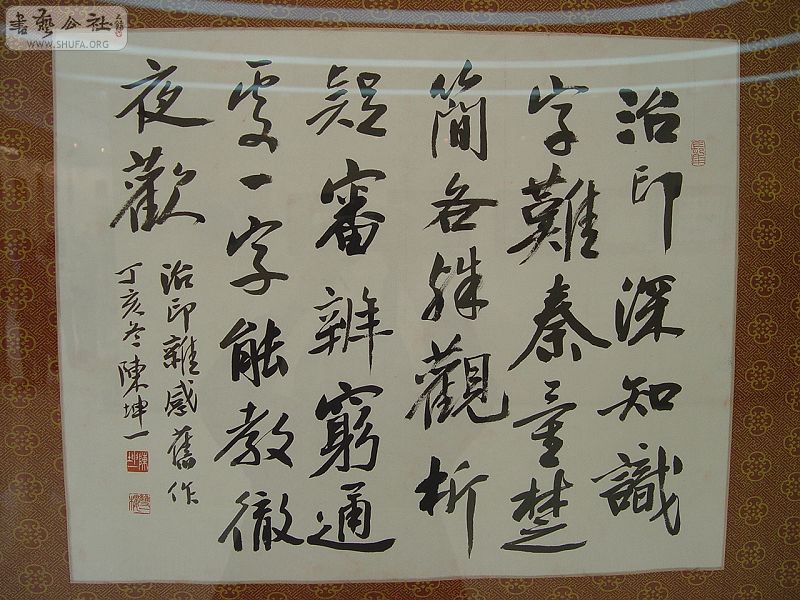 書藝公社
WWW.SHUFA.ORG
治印深知識
字難秦量楚
簡各殊觀析
疑審辨窮通
處一字能教徹
夜歡
治印雜感舊作
丁亥冬陳坤一